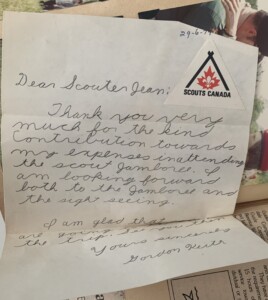 29-6-
SCOUTS CANADA
Dear Scouter Jean:
Thank you very
much for the kind
contribution towards
my expenses in attending
the scout Jamboree. I
am looking forward
both to the Jamboree and
the sight seeing.
I am glad that
are going
the trip.
Yours sincerely
Gordon